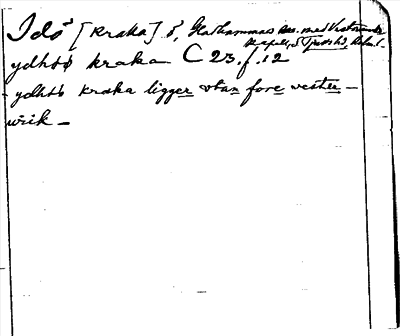 Idö [Kraka] ö, Gladhammar sn. med Västerviks
kapell, S Tjust hd, Kalm. l.
ydhöö kraka C 23. f. 12
ydhöö kraka ligger vtan fore vester-
wiik -